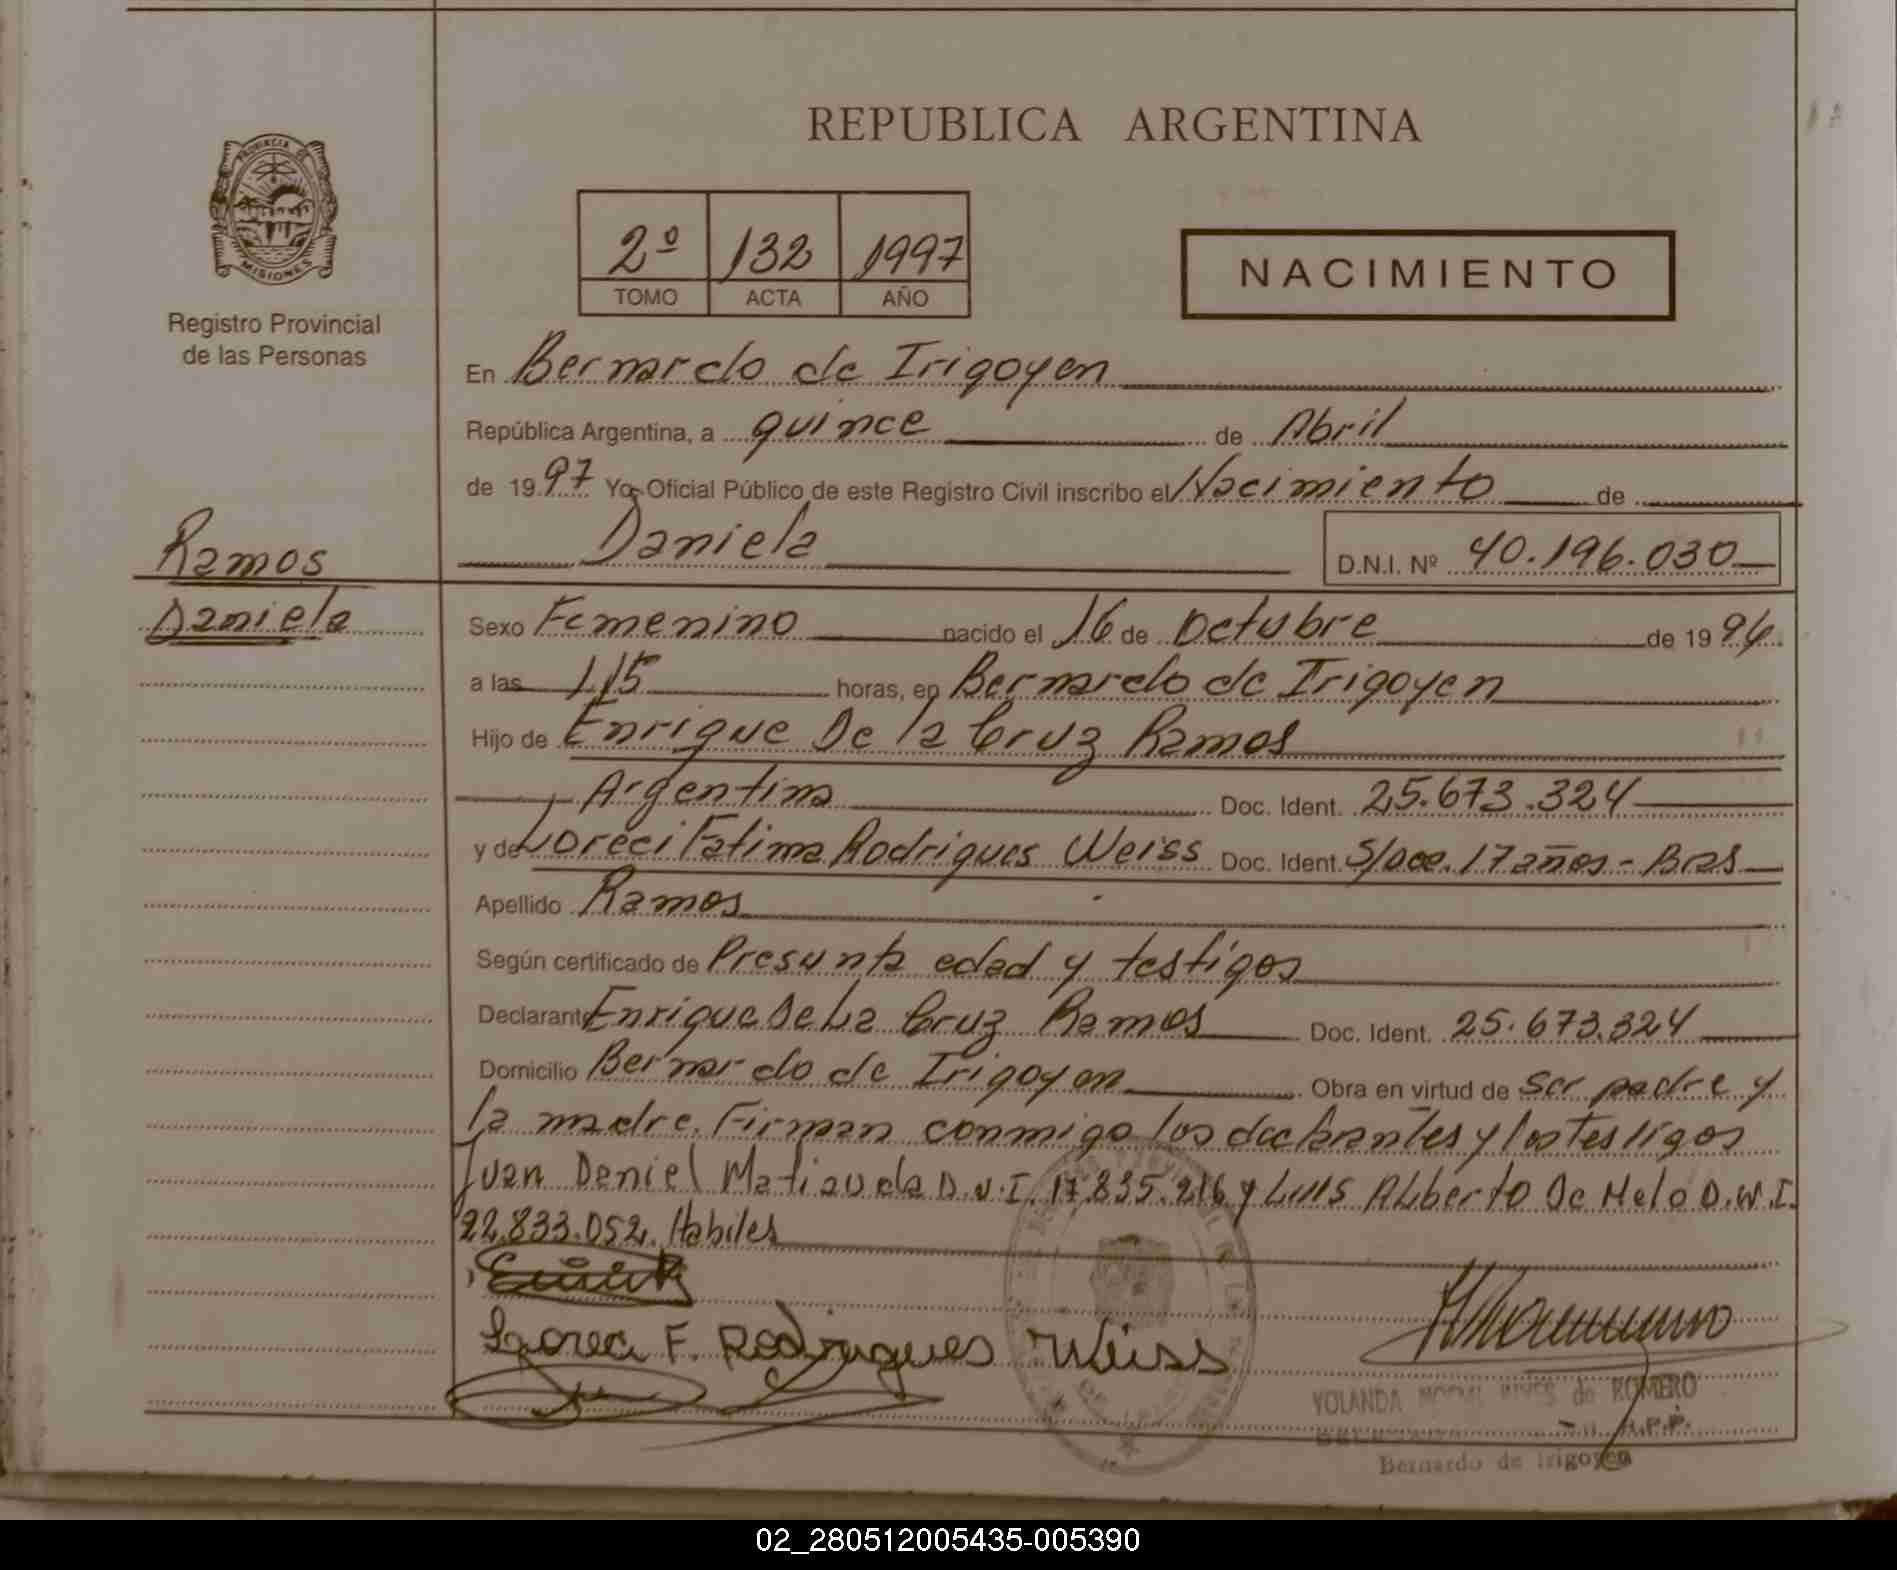 REPUBLICA ARGENTINA
PROVINCIA DE
MISIONES
Registro Provincial
de las Personas
2º 132 1997
TOMO ACTA AÑO
NACIMIENTO
En Bernardo de Irigoyen
República Argentina, a quince de Abril
de 1997 Yo, Oficial Público de este Registro Civil inscribo el Nacimiento de
Ramos
Daniela
Daniela D.N.I. Nº 40.196.030
Sexo Femenino nacido el 16 de Octubre de 1996
a las 1,15 horas, en Bernardo de Irigoyen
Hijo de Enrique De la Cruz Ramos
Argentina Doc. Ident. 25.673.324
y de Loreci Fatima Rodrigues Weiss Doc. Ident. 17 años - Bras
Apellido Ramos
Según certificado de Presunta edad y testigos
Declarante Enrique De La Cruz Ramos Doc. Ident. 25.673.324
Domicilio Bernardo de Irigoyen Obra en virtud de ser padre y
la madre. Firman conmigo los declarantes y los testigos
Juan Deniel D.N.I. 17.835.216 y Luis Alberto De Melo D.N.I.
22.833.052. Habiles
F. Rodrigues Weiss
YOLANDA de ROMERO
R.P.P.
Bernardo de Irigoyen
02_280512005435-005390